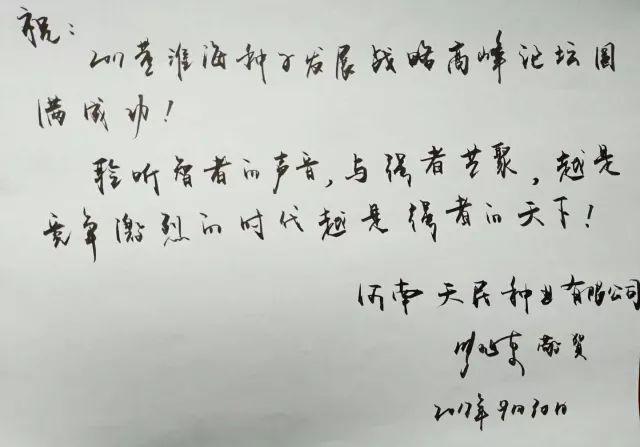 祝:
2017黄淮海种子发展战略高峰论坛圆
满成功!
聆听智者的声音,与强者共聚,越是
竞争激烈的时代越是强者的天下!
河南天民种业有限公司
敬贺
2017年9月30日